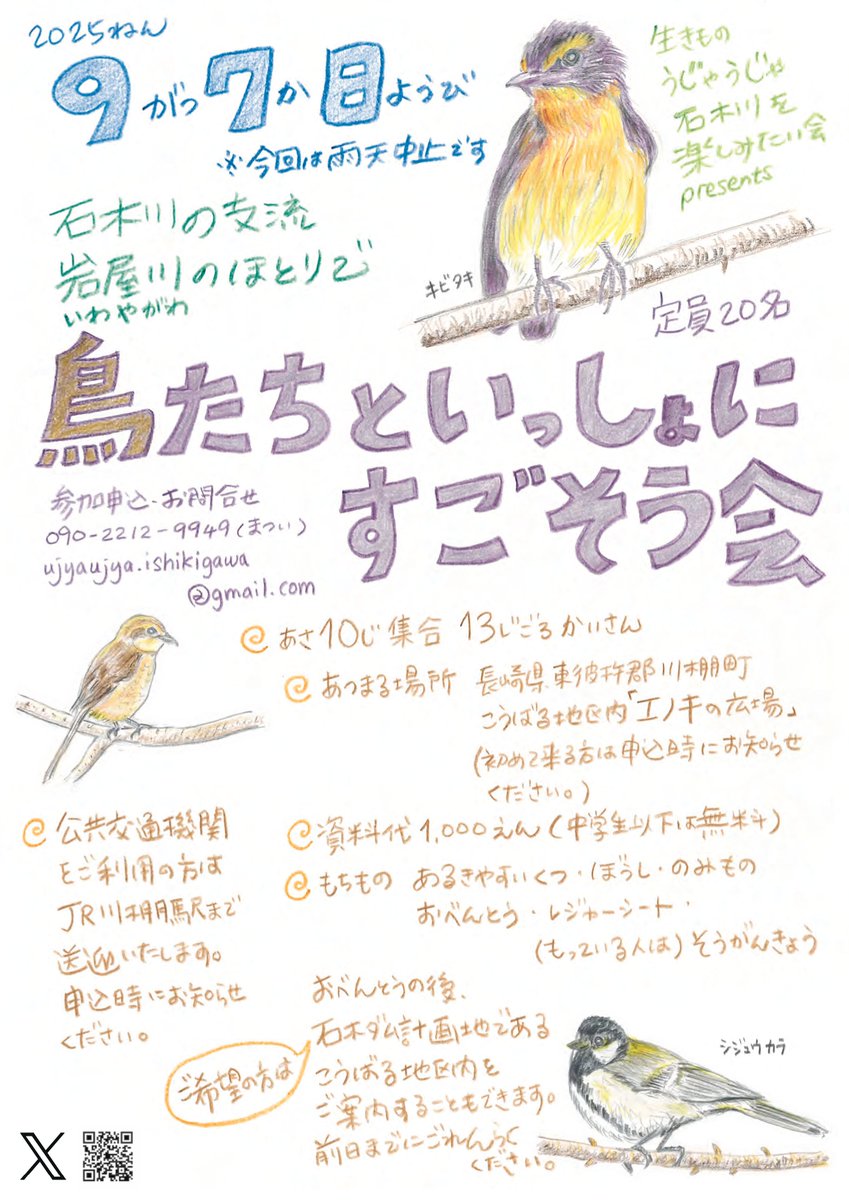 2025ねん
9がつ7か日ようび
※今回は雨天中止です
生きもの
うじゃうじゃ
石木川を
楽しみたい会
presents
石木川の支流
岩屋川のほとりで
いわやがわ
キビタキ
定員20名
鳥たちといっしょに
すごそう会
参加申込・お問合せ
090-2212-9949(まつい)
ujyaujya.ishikigawa
@gmail.com
あさ10じ集合 13じごろかいさん
あつまる場所 長崎県東彼杵郡川棚町
こうばる地区内「エノキの広場」
(初めて来る方は申込時にお知らせ
ください。)
公共交通機関
をご利用の方は
JR川棚駅まで
送迎いたします。
申込時にお知らせ
ください。
資料代1,000えん(中学生以下は無料)
もちもの あるきやすいくつ・ぼうし・のみもの
おべんとう・レジャーシート・
(もっている人は)そうがんきょう
ご希望の方は
おべんとうの後、
石木ダム計画地である
こうばる地区内を
ご案内することもできます。
前日までにごれんらく
ください。
シジュウカラ
X